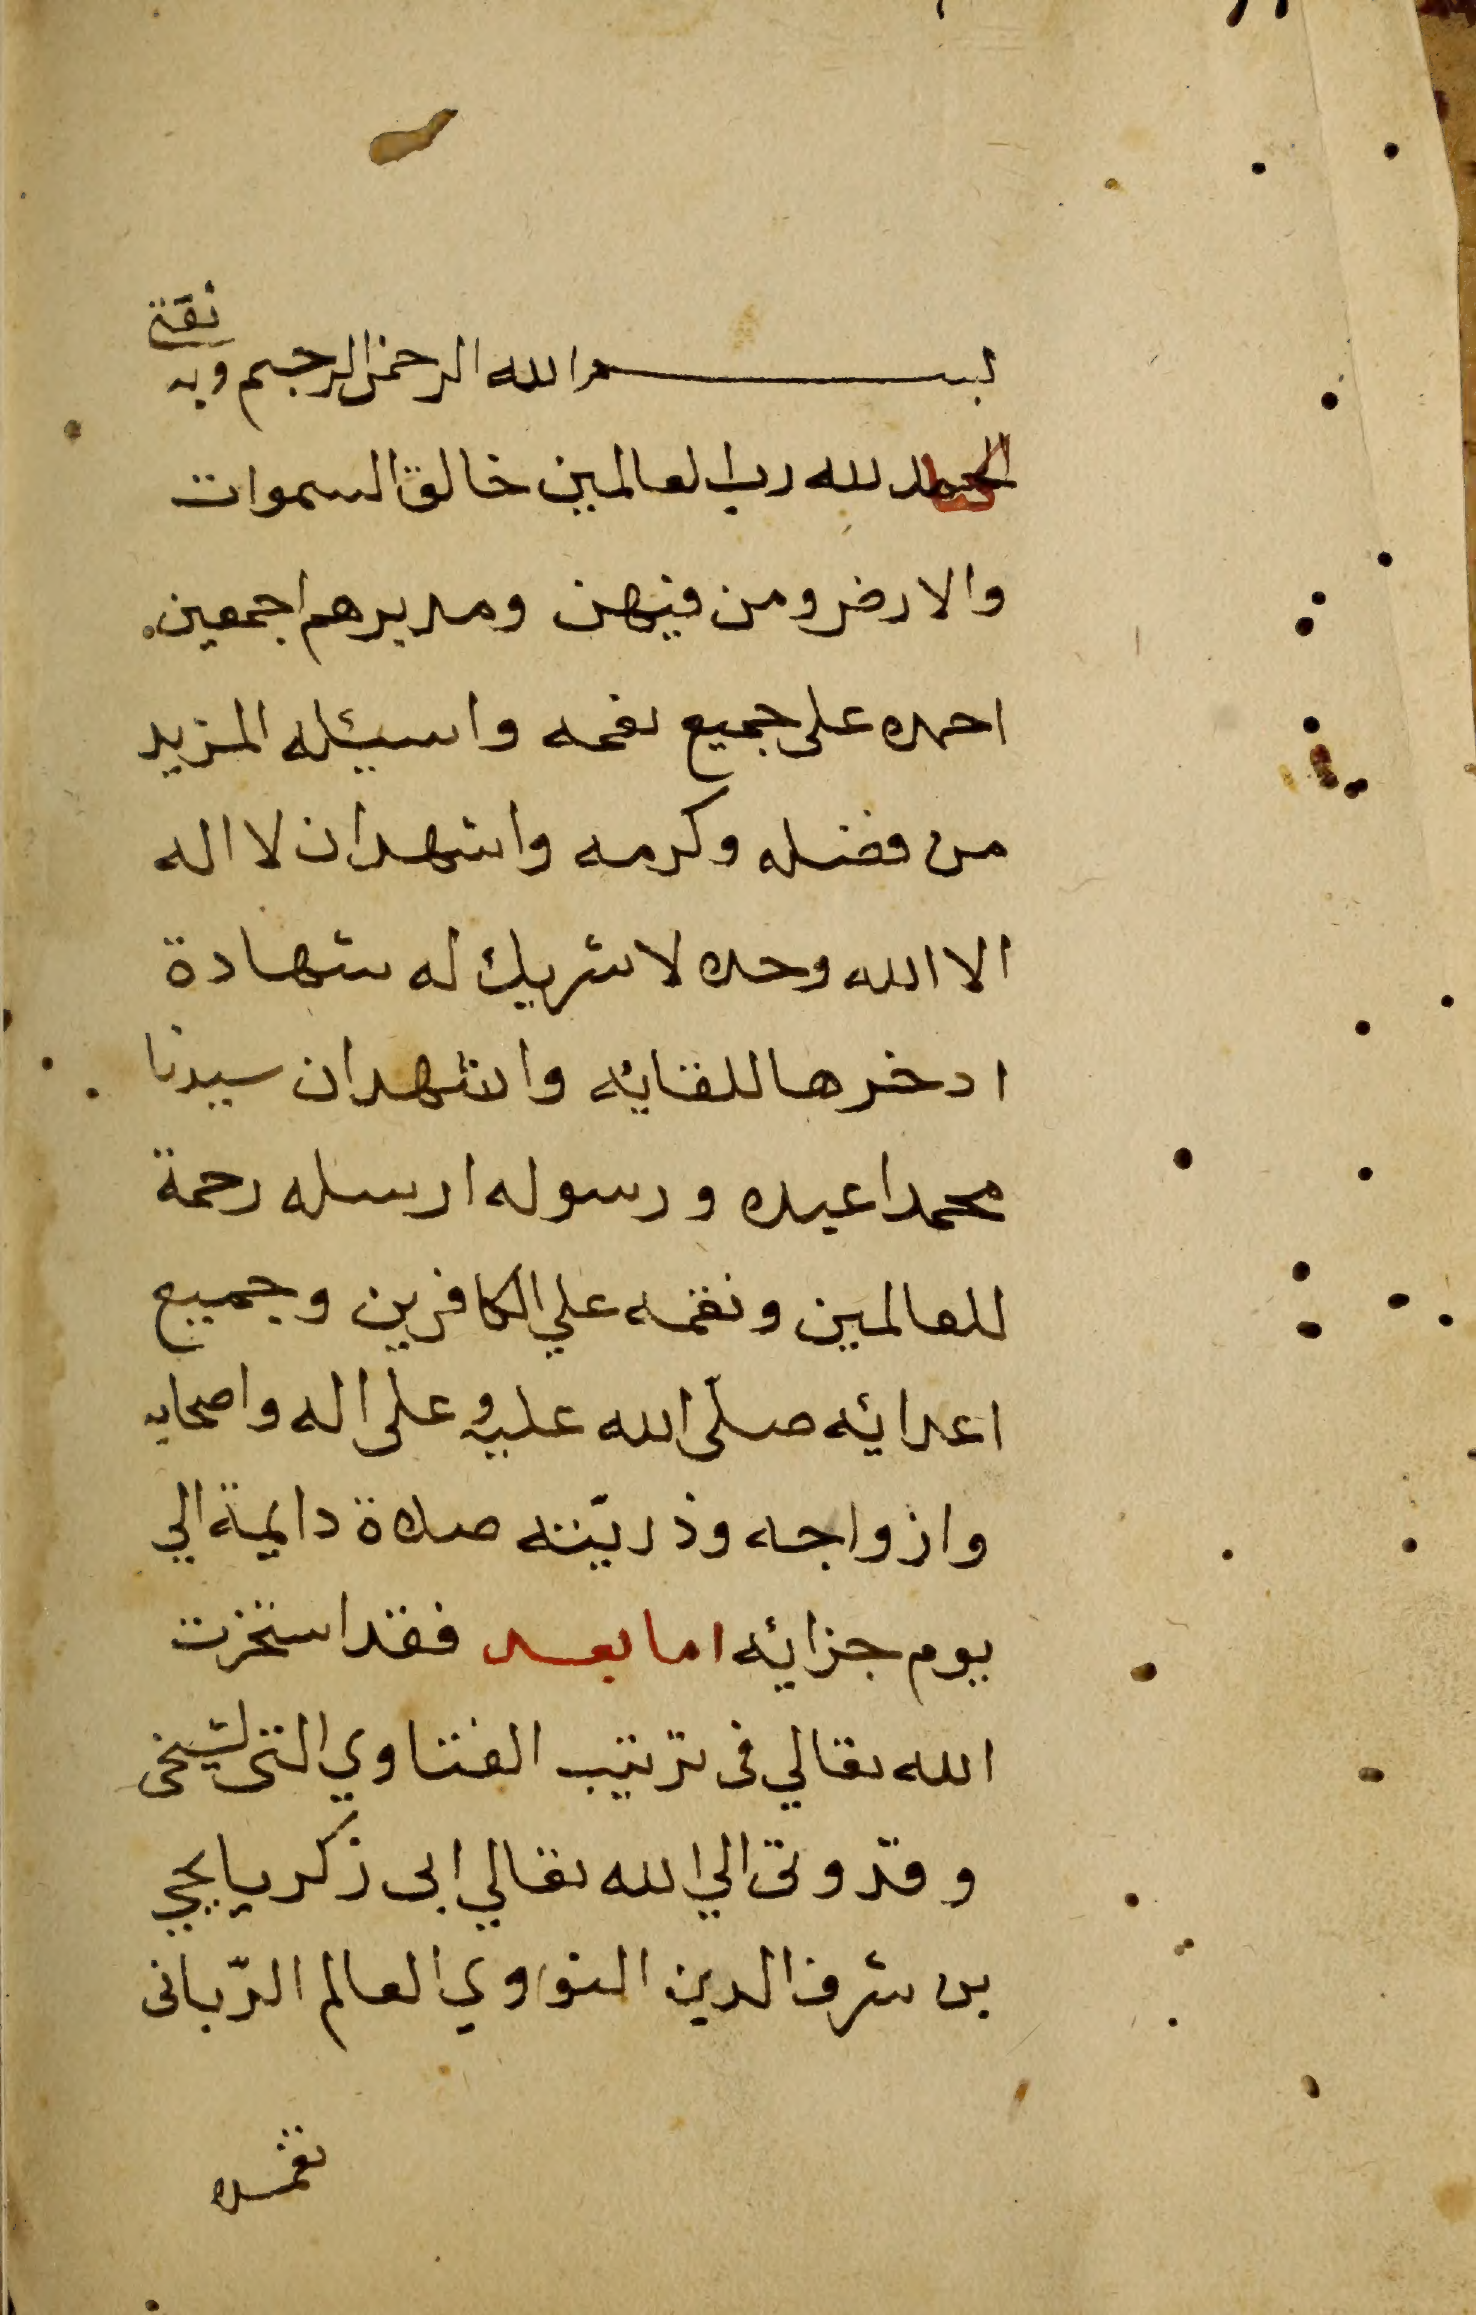 بسم الله الرحمن الرحيم وبه ثقتي
الحمد لله رب العالمين خالق السموات
والارض ومن فيهن ومدبرهم اجمعين
احمده على جميع نعمه واسئله المزيد
من فضله وكرمه واشهد ان لا اله
الا الله وحده لا شريك له شهادة
ادخرها للقائه واشهد ان سيدنا
محمدا عبده ورسوله ارسله رحمة
للعالمين ونقمه علي الكافرين وجميع
اعدائه صلّى الله عليه وعلى اله واصحابه
وازواجه وذريّته صلاة دايمة الي
يوم جزائه اما بعد فقد استخرت
الله تعالي فى ترتيب الفتاوي التى لشيخى
وقدوتى الي الله تعالي ابى زكريا يحيي
بن شرف الدين النواوي العالم الرّبانى
تغمده